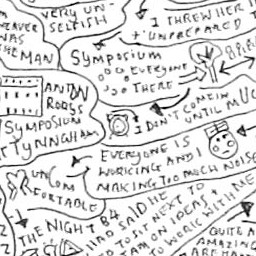 VERY UN-
SELFISH
WEAVER
WAS
THE MAN
I THREW HER
+ UNPREPARED
SYMPOSIUM
EVERYONE
THERE
ANTON
RODGS
SYMPOSIUM
TYNNGHAM
I DON'T COME IN
UNTIL MUC
EVERYONE IS
WORKING AND
MAKING TOO MUCH NOISE
UNCOM
FORTABLE
THE NIGHT B4
HAD SAID HE
TO SIT NEXT TO
AM ON IDEAS +
TO WORK WITH ME
QUITE A
AMAZING
ARE HA